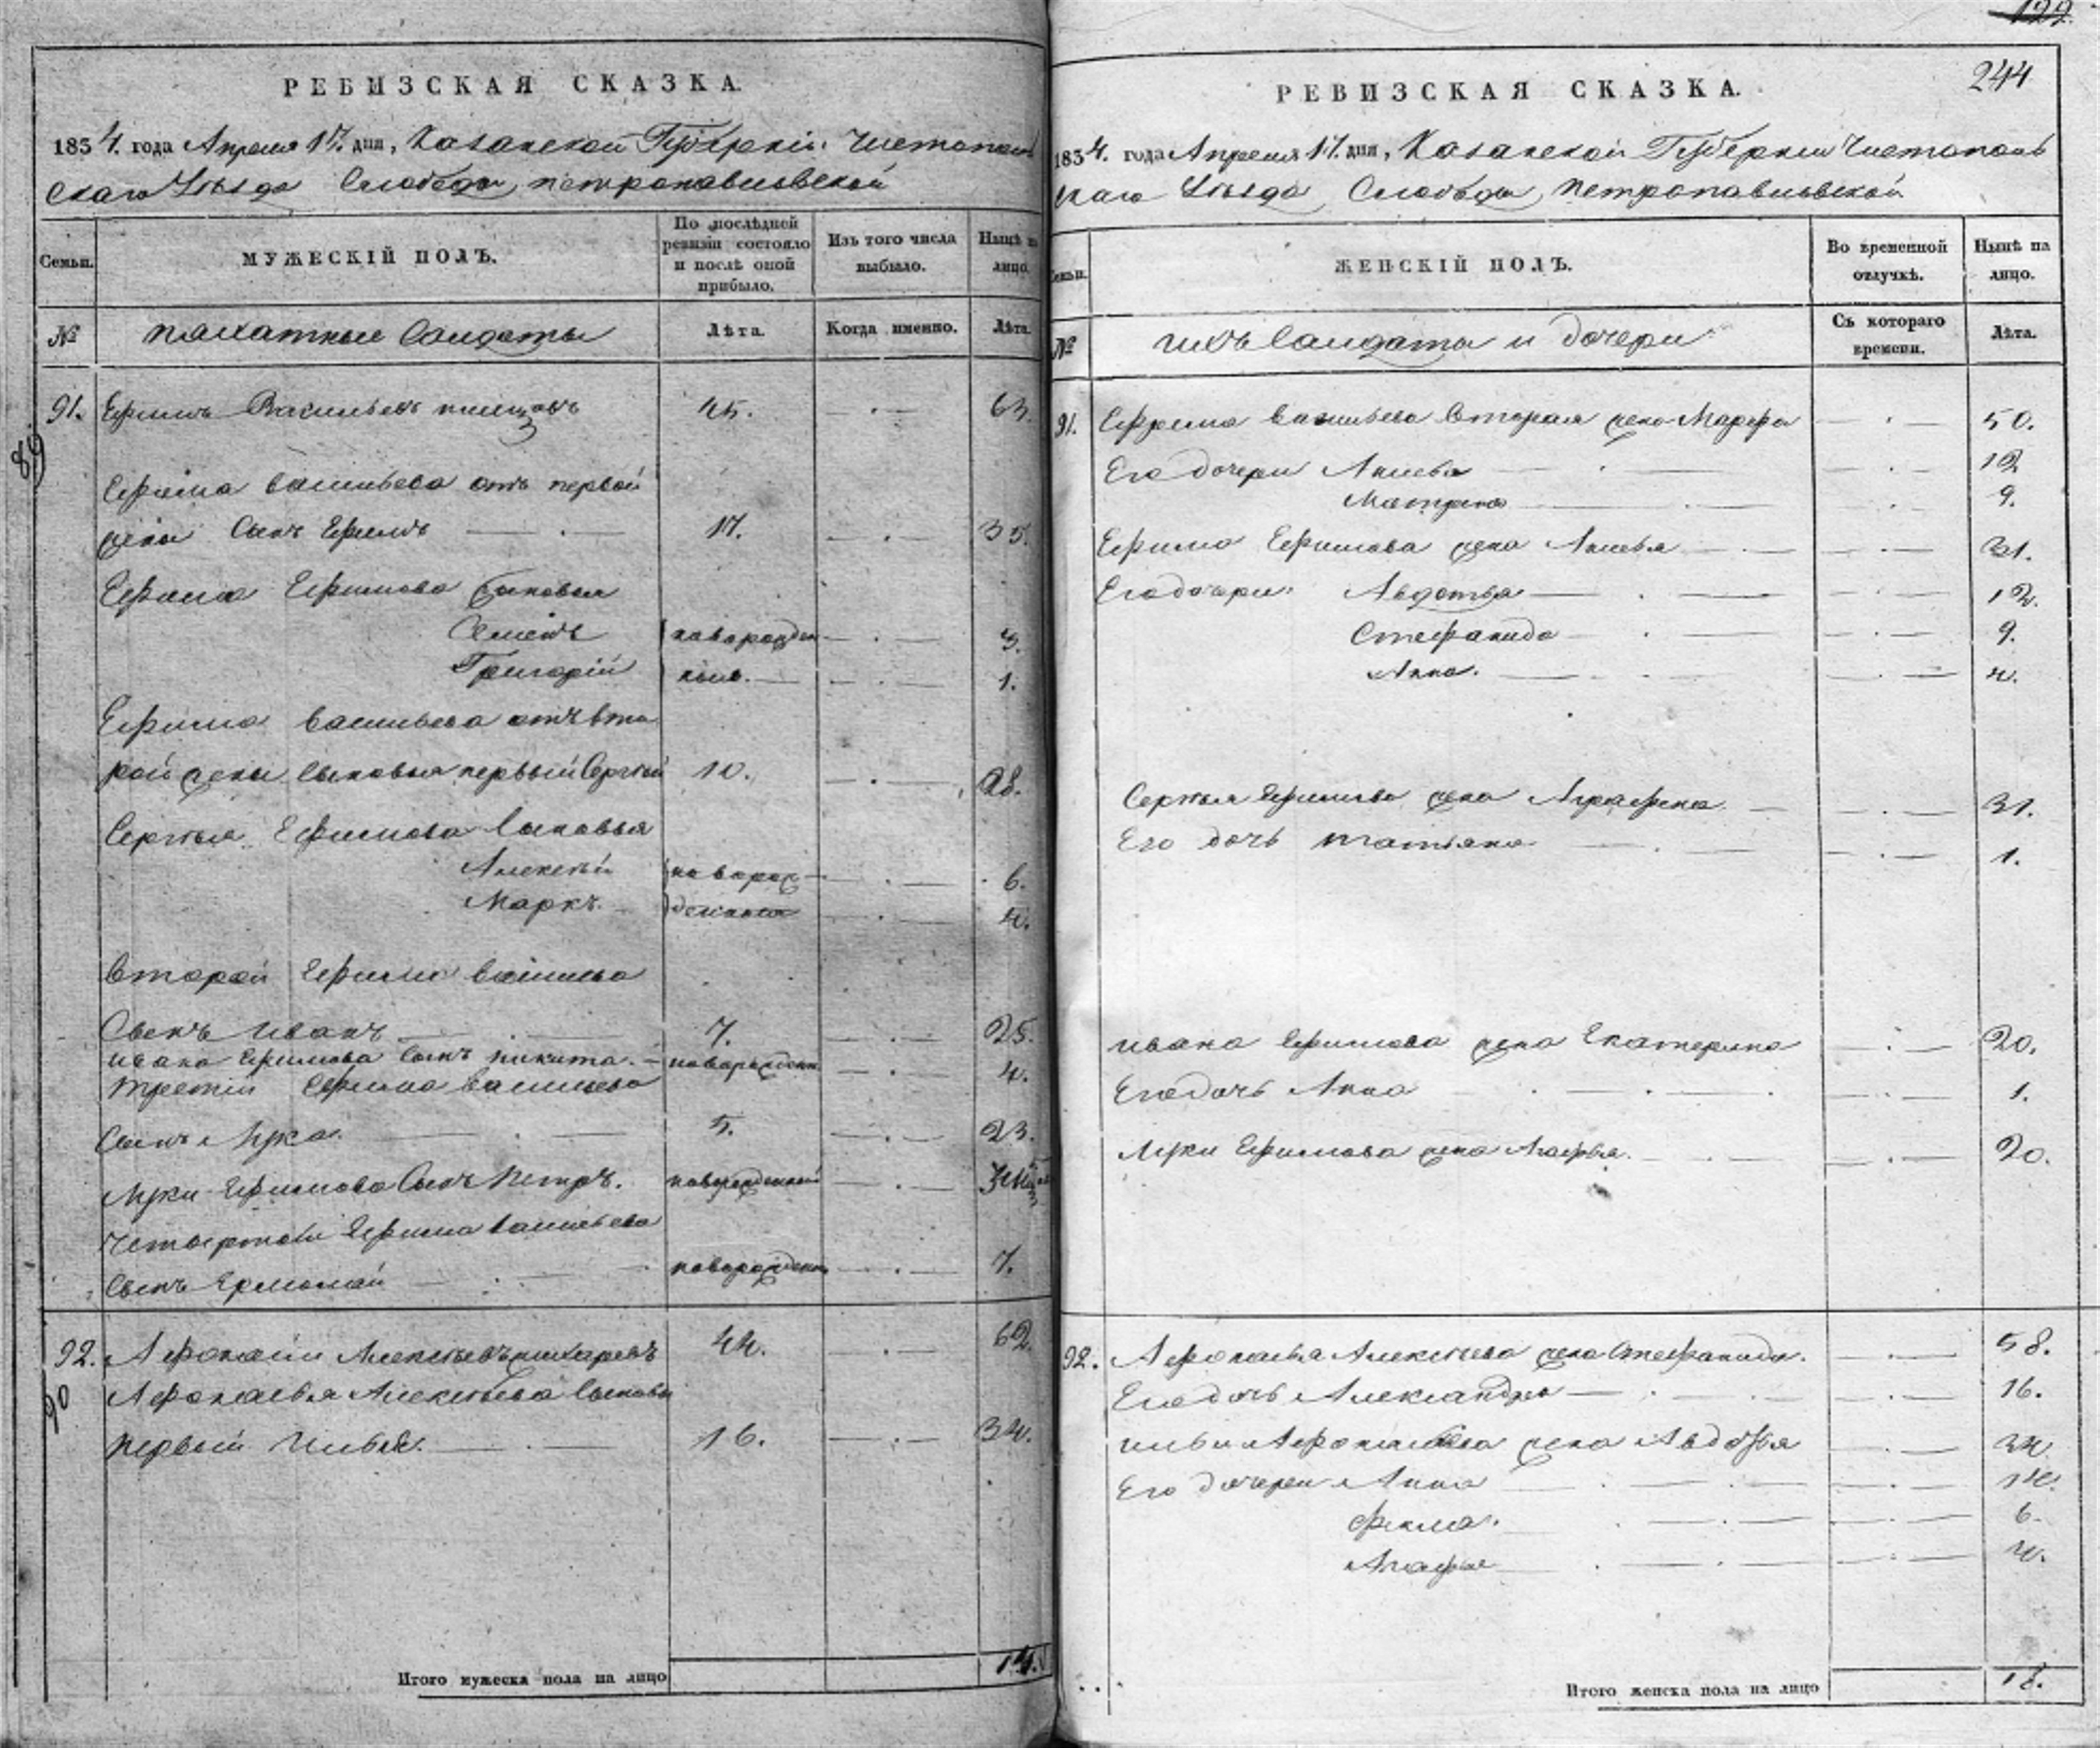 РЕВИЗСКАЯ СКАЗКА.
1834. года Апреля 17. дня, Казанской Губерніи Чистополь
скаго Уѣзда Слободы Петропавловской
Семьи.
МУЖЕСКІЙ ПОЛЪ.
По послѣдней ревизіи состояло и послѣ оной прибыло.
Изъ того числа выбыло.
Нынѣ на лицо.
№
Пахатные Солдаты
Лѣта.
Когда именно.
Лѣта.
91. Ефимъ Васильевъ 45. 63.
89
Ефима Васильева отъ первой
жены Сынъ Ефимъ 17. 35.
Ефима Ефимова Сыновья
Семенъ новорожден 3.
Григорій ные. 1.
Ефима Васильева отъ вто
рой жены Сыновья первый Сергѣй 10. 28.
Сергѣя Ефимова Сыновья
Алексѣй новорож 6.
Маркъ. денныя 4.
Второй Ефима Васильева
Сынъ Иванъ 7. 25.
Ивана Ефимова Сынъ Никита. новорожден 4.
Третій Ефима Васильева
Сынъ Лука. 5. 23.
Луки Ефимова Сынъ Петръ. новорожденный
Четвертой Ефима Васильева
Сынъ Ермолай новорожден 7.
92. Афонасій Алексѣевъ 44. 62.
90
Афонасья Алексѣева Сыновья
первый Илья. 16. 34.
Итого мужеска пола на лицо 14.
122.
244
РЕВИЗСКАЯ СКАЗКА.
1834. года Апреля 17. дня, Казанской Губерніи Чистополь
скаго Уѣзда Слободы Петропавловской
Семьи.
ЖЕНСКІЙ ПОЛЪ.
Во временной отлучкѣ.
Нынѣ на лицо.
№
ихъ Солдаты и дочери
Съ котораго времени.
Лѣта.
91. Ефима Васильева Вторая жена Марфа 50.
Его дочери 12
Матрена 9.
Ефима Ефимова жена 31.
Его дочери Авдотья 12.
Стефанида 9.
Анна. 4.
Сергѣя Ефимова жена Аграфена 31.
Его дочь Татьяна 1.
Ивана Ефимова жена Екатерина 20.
Его дочь Анна 1.
Луки Ефимова жена Агафья. 20.
92. Афонасья Алексѣева жена Стефанида. 58.
Его дочь Александра 16.
Ильи Афонасьева жена Авдотья 34.
Его дочери Анна 14.
Фекла. 6.
Агафья 4.
Итого женска пола на лицо 18.